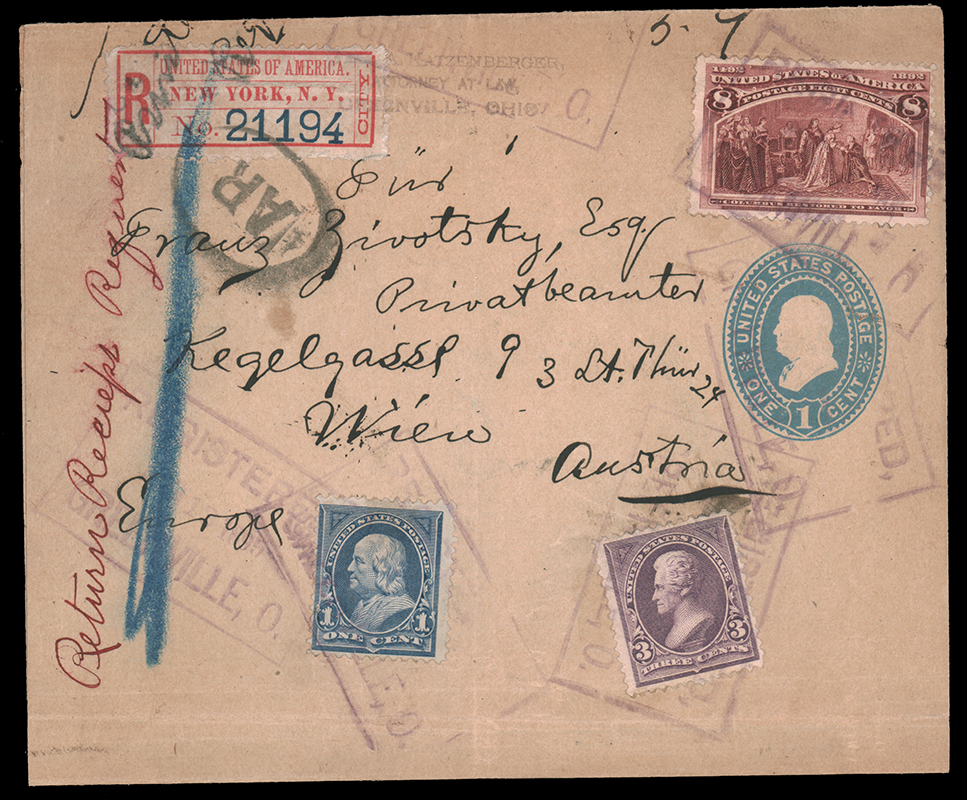 5-9
R
UNITED STATES OF AMERICA.
NEW YORK, N. Y.
No. 21194
KATZENBERGER,
ATTORNEY AT LAW,
GREENVILLE, OHIO.
1492 1892
UNITED STATES OF AMERICA
POSTAGE EIGHT CENTS
8 8
COLUMBUS RESTORED TO FAVOR
AR
Für
Franz Zivotsky, Esq
Privatbeamter
Kegelgasse 9 3 St. Thür 24
Wien
Austria
Europe
Return Receips Requent
UNITED STATES POSTAGE
ONE 1 CENT
UNITED STATES POSTAGE
1 1
ONE CENT
UNITED STATES POSTAGE
3 3
THREE CENTS
REGISTERED
VILLE, O.
E, O.
ED,